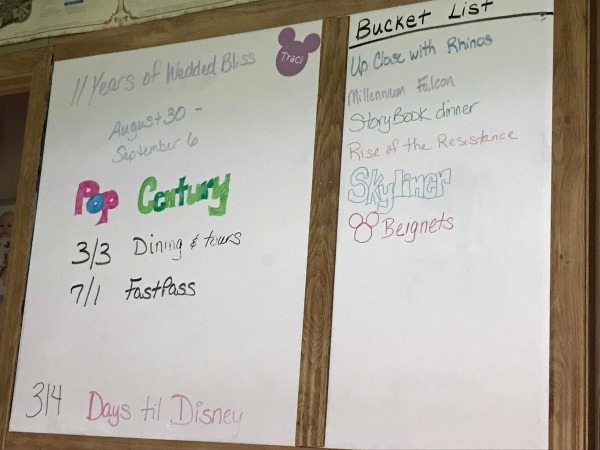 11 Years of Wedded Bliss
Traci
August 30 -
September 6
Pop Century
3/3 Dining & tours
7/1 FastPass
314 Days til Disney
Bucket List
Up Close with Rhinos
Millennium Falcon
StoryBook dinner
Rise of the Resistance
Skyliner
Beignets